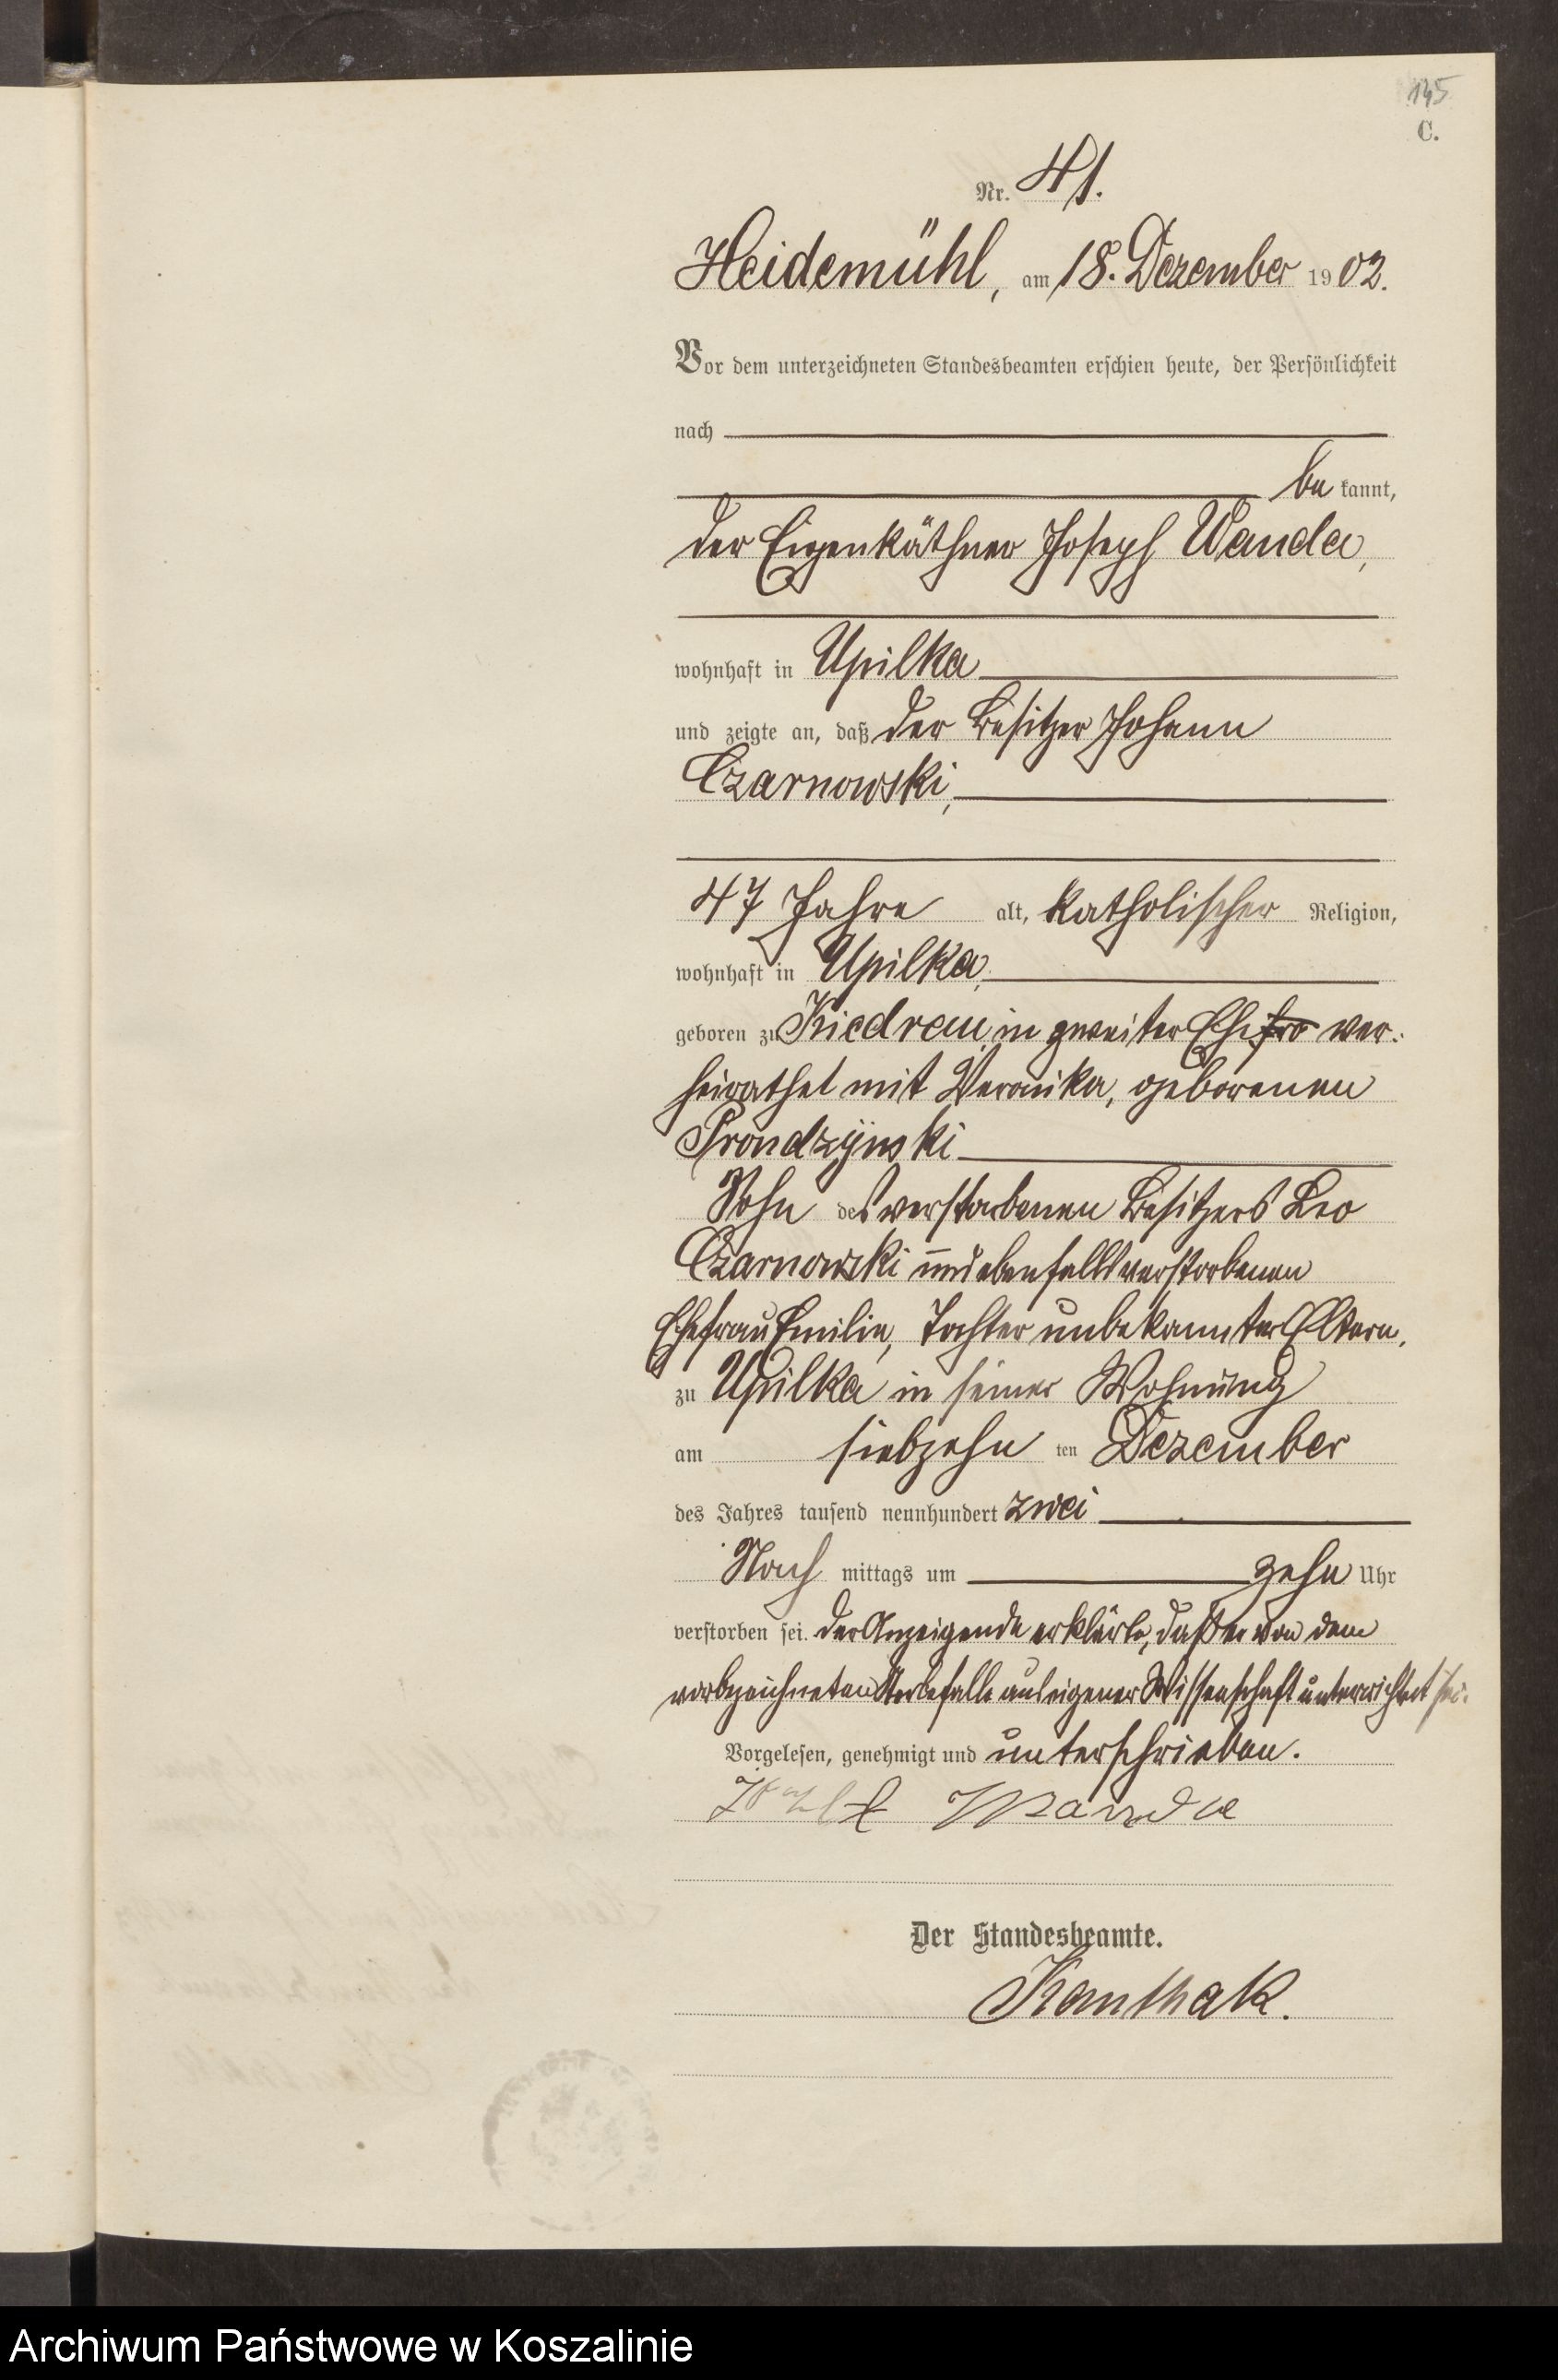 145
C.
Nr. 41.
Heidemühl, am 18. Dezember 1902.
Vor dem unterzeichneten Standesbeamten erschien heute, der Persönlichkeit
nach
be kannt,
der Eigenkäthner Joseph Wanda,
wohnhaft in Upilka
und zeigte an, daß der Besitzer Johann
Czarnowski,
47 Jahre alt, katholischer Religion,
wohnhaft in Upilka,
geboren zu Kiedrau, in zweiter Ehe ver-
heirathet mit Veronika, geborenen
Prondzynski
Sohn des verstorbenen Besitzers Leo
Czarnowski und ebenfalls verstorbenen
Ehefrau Emilie, Tochter unbekannter Eltern,
zu Upilka in seiner Wohnung
am siebzehn ten Dezember
des Jahres tausend neunhundert zwei
Nach mittags um zehn Uhr
verstorben sei. Der Anzeigende erklärte, daß er von dem
vorbezeichneten Sterbefalle aus eigener Wissenschaft unterrichtet sei.
Vorgelesen, genehmigt und unterschrieben.
Wanda
Der Standesbeamte.
Kanthak.
Archiwum Państwowe w Koszalinie